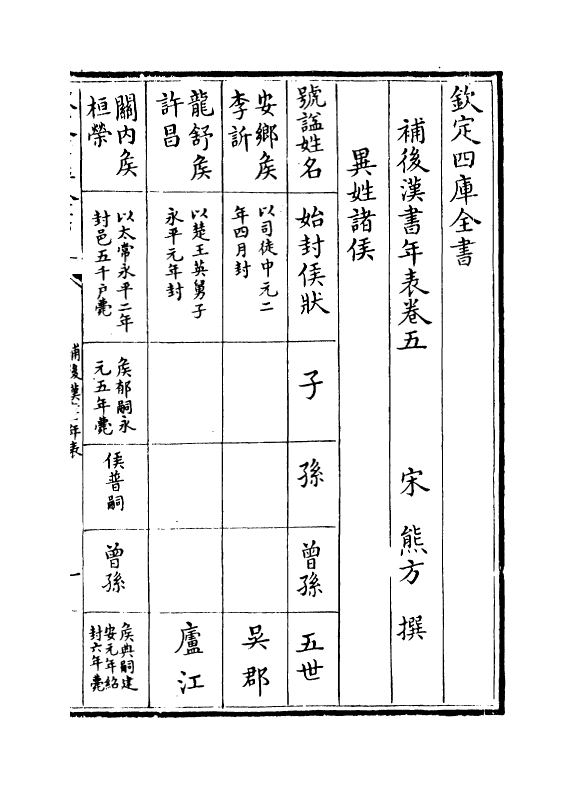 欽定四庫全書
補後漢書年表卷五
宋　熊方　撰
異姓諸侯
號諡姓名
始封侯狀
子
孫
曾孫
五世
安鄉侯
李訢
以司徒中元二
年四月封
吳郡
龍舒侯
許昌
以楚王英舅子
永平元年封
廬江
關內侯
桓榮
以太常永平二年
封邑五千户薨
侯郁嗣永
元五年薨
侯普嗣
曾孫
侯典嗣建
安元年紹
封六年薨
補後漢書年表
一